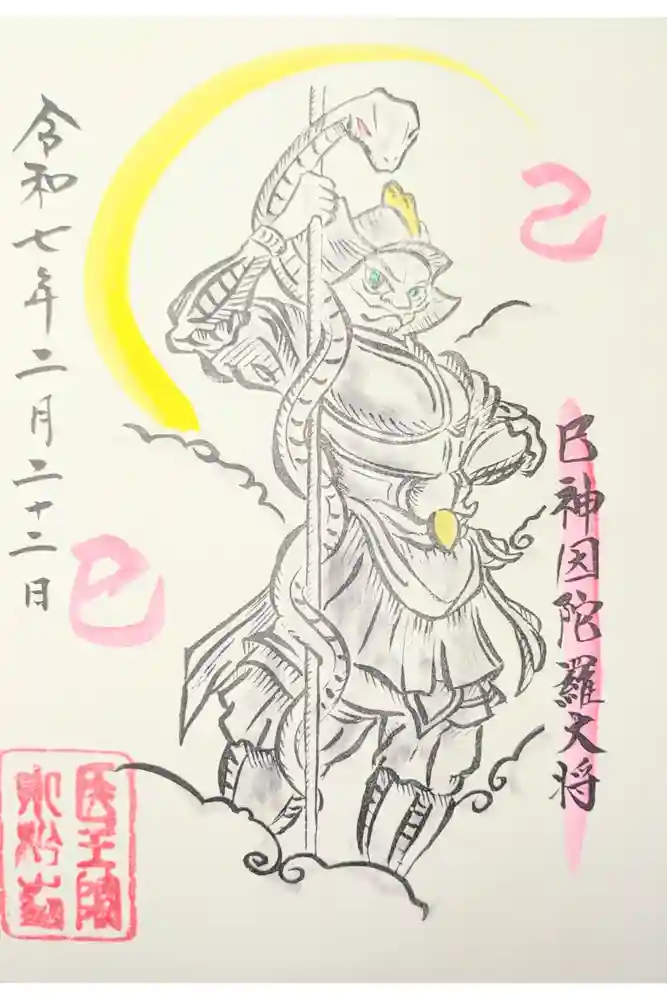 己
巳神因陀羅大将
令和七年二月二十二日
巳
医王院